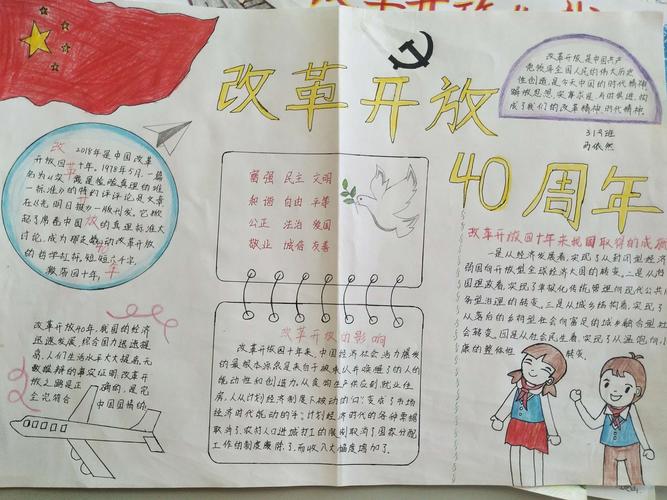 改革开放
40周年
改革开放,是中国共产
党领导全国人民的伟大历史
性创造,是今天中国的时代精神
解放思想、实事求是、与时俱进,构
成了我们的改革精神,时代精神
319班
2018年是中国改革
开放四十年。1978年5月,一篇
名为《实践是检验真理的唯
一标准》的特约评论员文章
在《光明日报》一版刊发。它掀
起了席卷中国的真理标准大
讨论,成为推动改革开放
的哲学红标,短短六千字,
激荡四十年;
改
革
开
放
40
年
富强 民主 文明
和谐 自由 平等
公正 法治 爱国
敬业 诚信 友善
改革开放四十年来我国取得的成
一是从经济发展看,实现了从封闭型经济
的国向开放型全球经济大国的转变。二是从治
国理政看,实现了单
各型治理的转变。三是从城乡结构看,实现了
从落后的乡村型社会向富足的城乡融合型社
会转变。四是从社会民生看,实现了从温饱向小
康的整体性 转变。
改革开放的影响
改革开放四十年来,中国经济社会活力爆发
的最根本源泉是来自于被
能动性和创造力。从食物生产保
房,人从计划经济制度下被动的
经济时代能动的
取消了,农村人口进城打工的限制取消了,国家分配
工作的制度废除了,而收入大幅度增加了。
改革开放40年,我国的经济
迅速发展,综合国力迅速提
高,人们生活水平大大提高,无
数雄辩的事实证明,改革开
放之路是正 确的,是
全完符合 中国国情的。